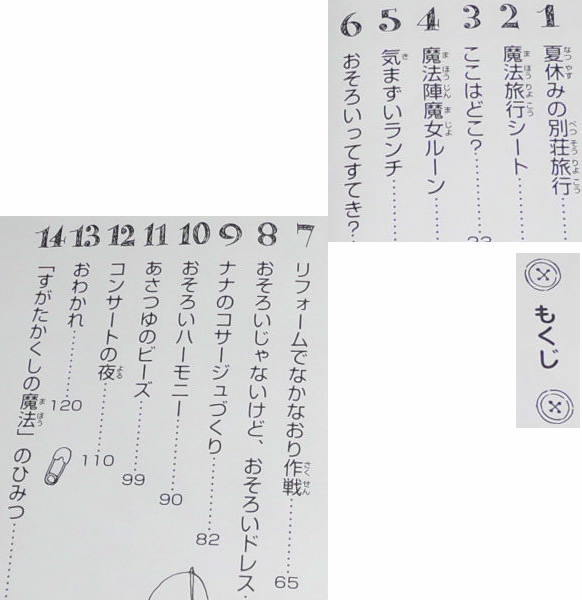 もくじ
1 夏休みの別荘旅行
2 魔法旅行シート
3 ここはどこ?
4 魔法陣魔女ルーン
5 気まずいランチ
6 おそろいってすてき?
7 リフォームでなかなおり作戦 65
8 おそろいじゃないけど、おそろいドレス
9 ナナのコサージュづくり 82
10 おそろいハーモニー 90
11 あさつゆのビーズ 99
12 コンサートの夜 110
13 おわかれ 120
14 「すがたかくしの魔法」のひみつ